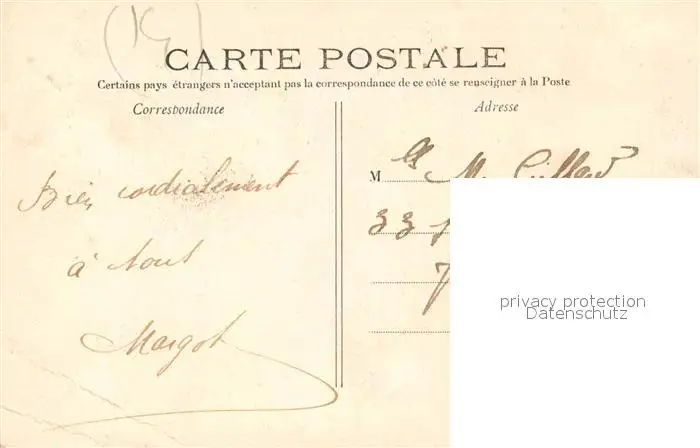 CARTE POSTALE
Certains pays étrangers n'acceptant pas la correspondance de ce côté se renseigner à la Poste
Correspondance
Adresse
M
33
Bien cordialement
à tous
Margot
privacy protection
Datenschutz